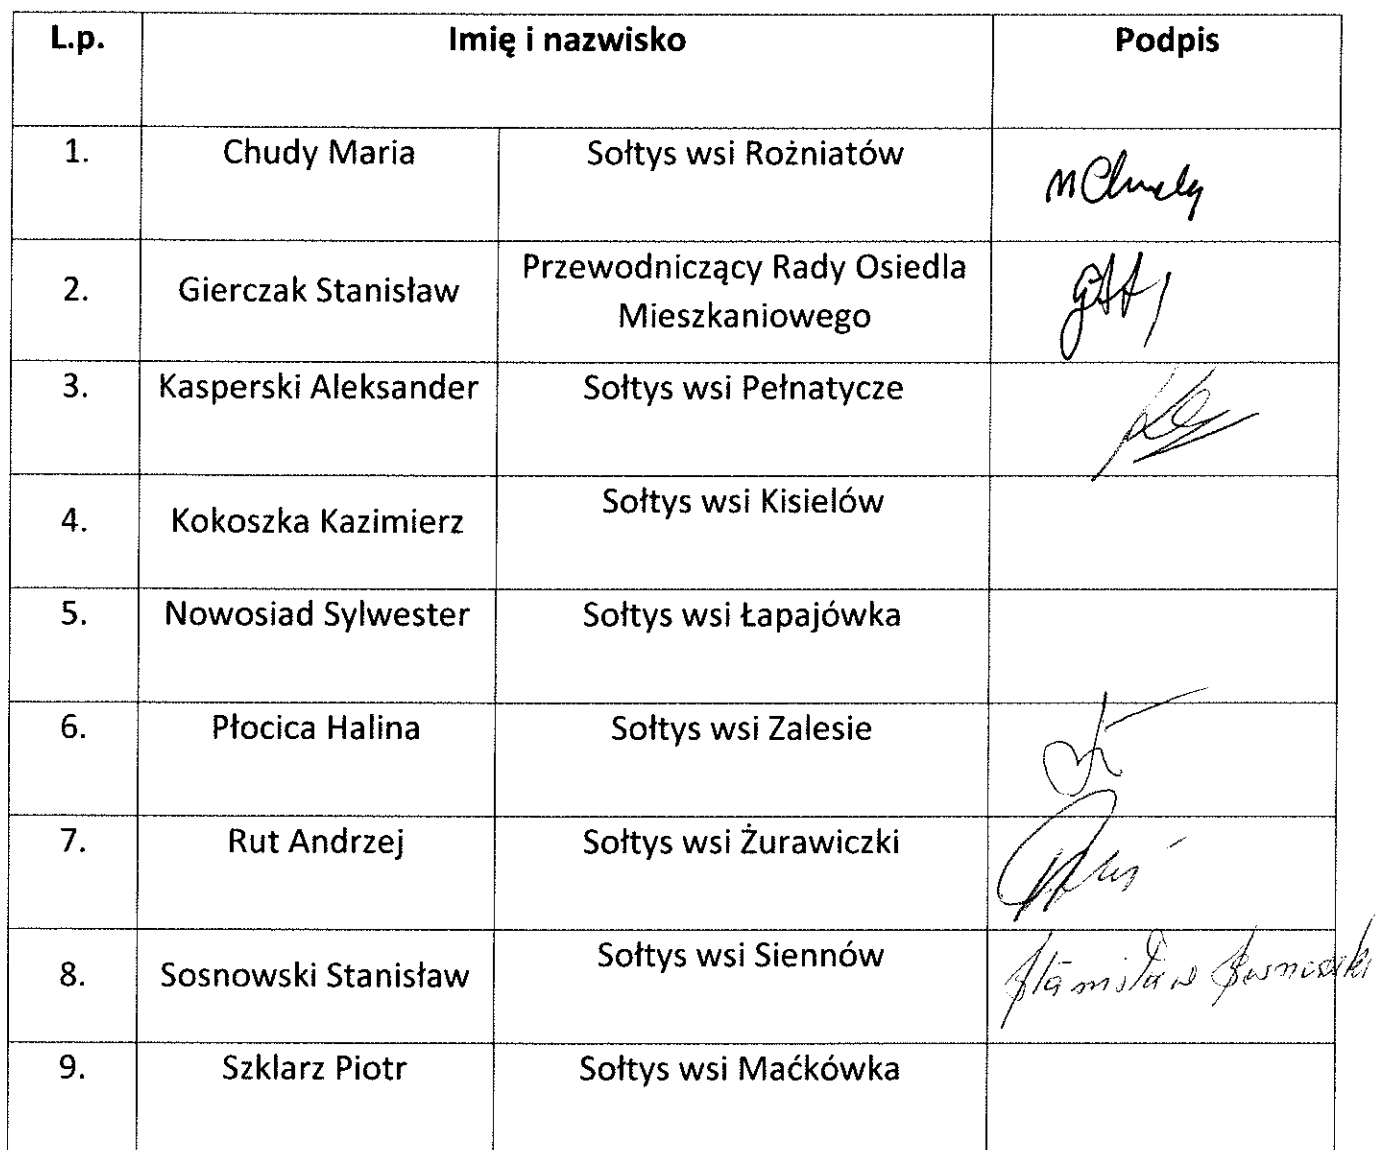 L.p. Imię i nazwisko Podpis
1. Chudy Maria Sołtys wsi Rożniatów MChudy
2. Gierczak Stanisław Przewodniczący Rady Osiedla
Mieszkaniowego
3. Kasperski Aleksander Sołtys wsi Pełnatycze
4. Kokoszka Kazimierz Sołtys wsi Kisielów
5. Nowosiad Sylwester Sołtys wsi Łapajówka
6. Płocica Halina Sołtys wsi Zalesie
7. Rut Andrzej Sołtys wsi Żurawiczki
8. Sosnowski Stanisław Sołtys wsi Siennów Stanisław Sosnowski
9. Szklarz Piotr Sołtys wsi Maćkówka